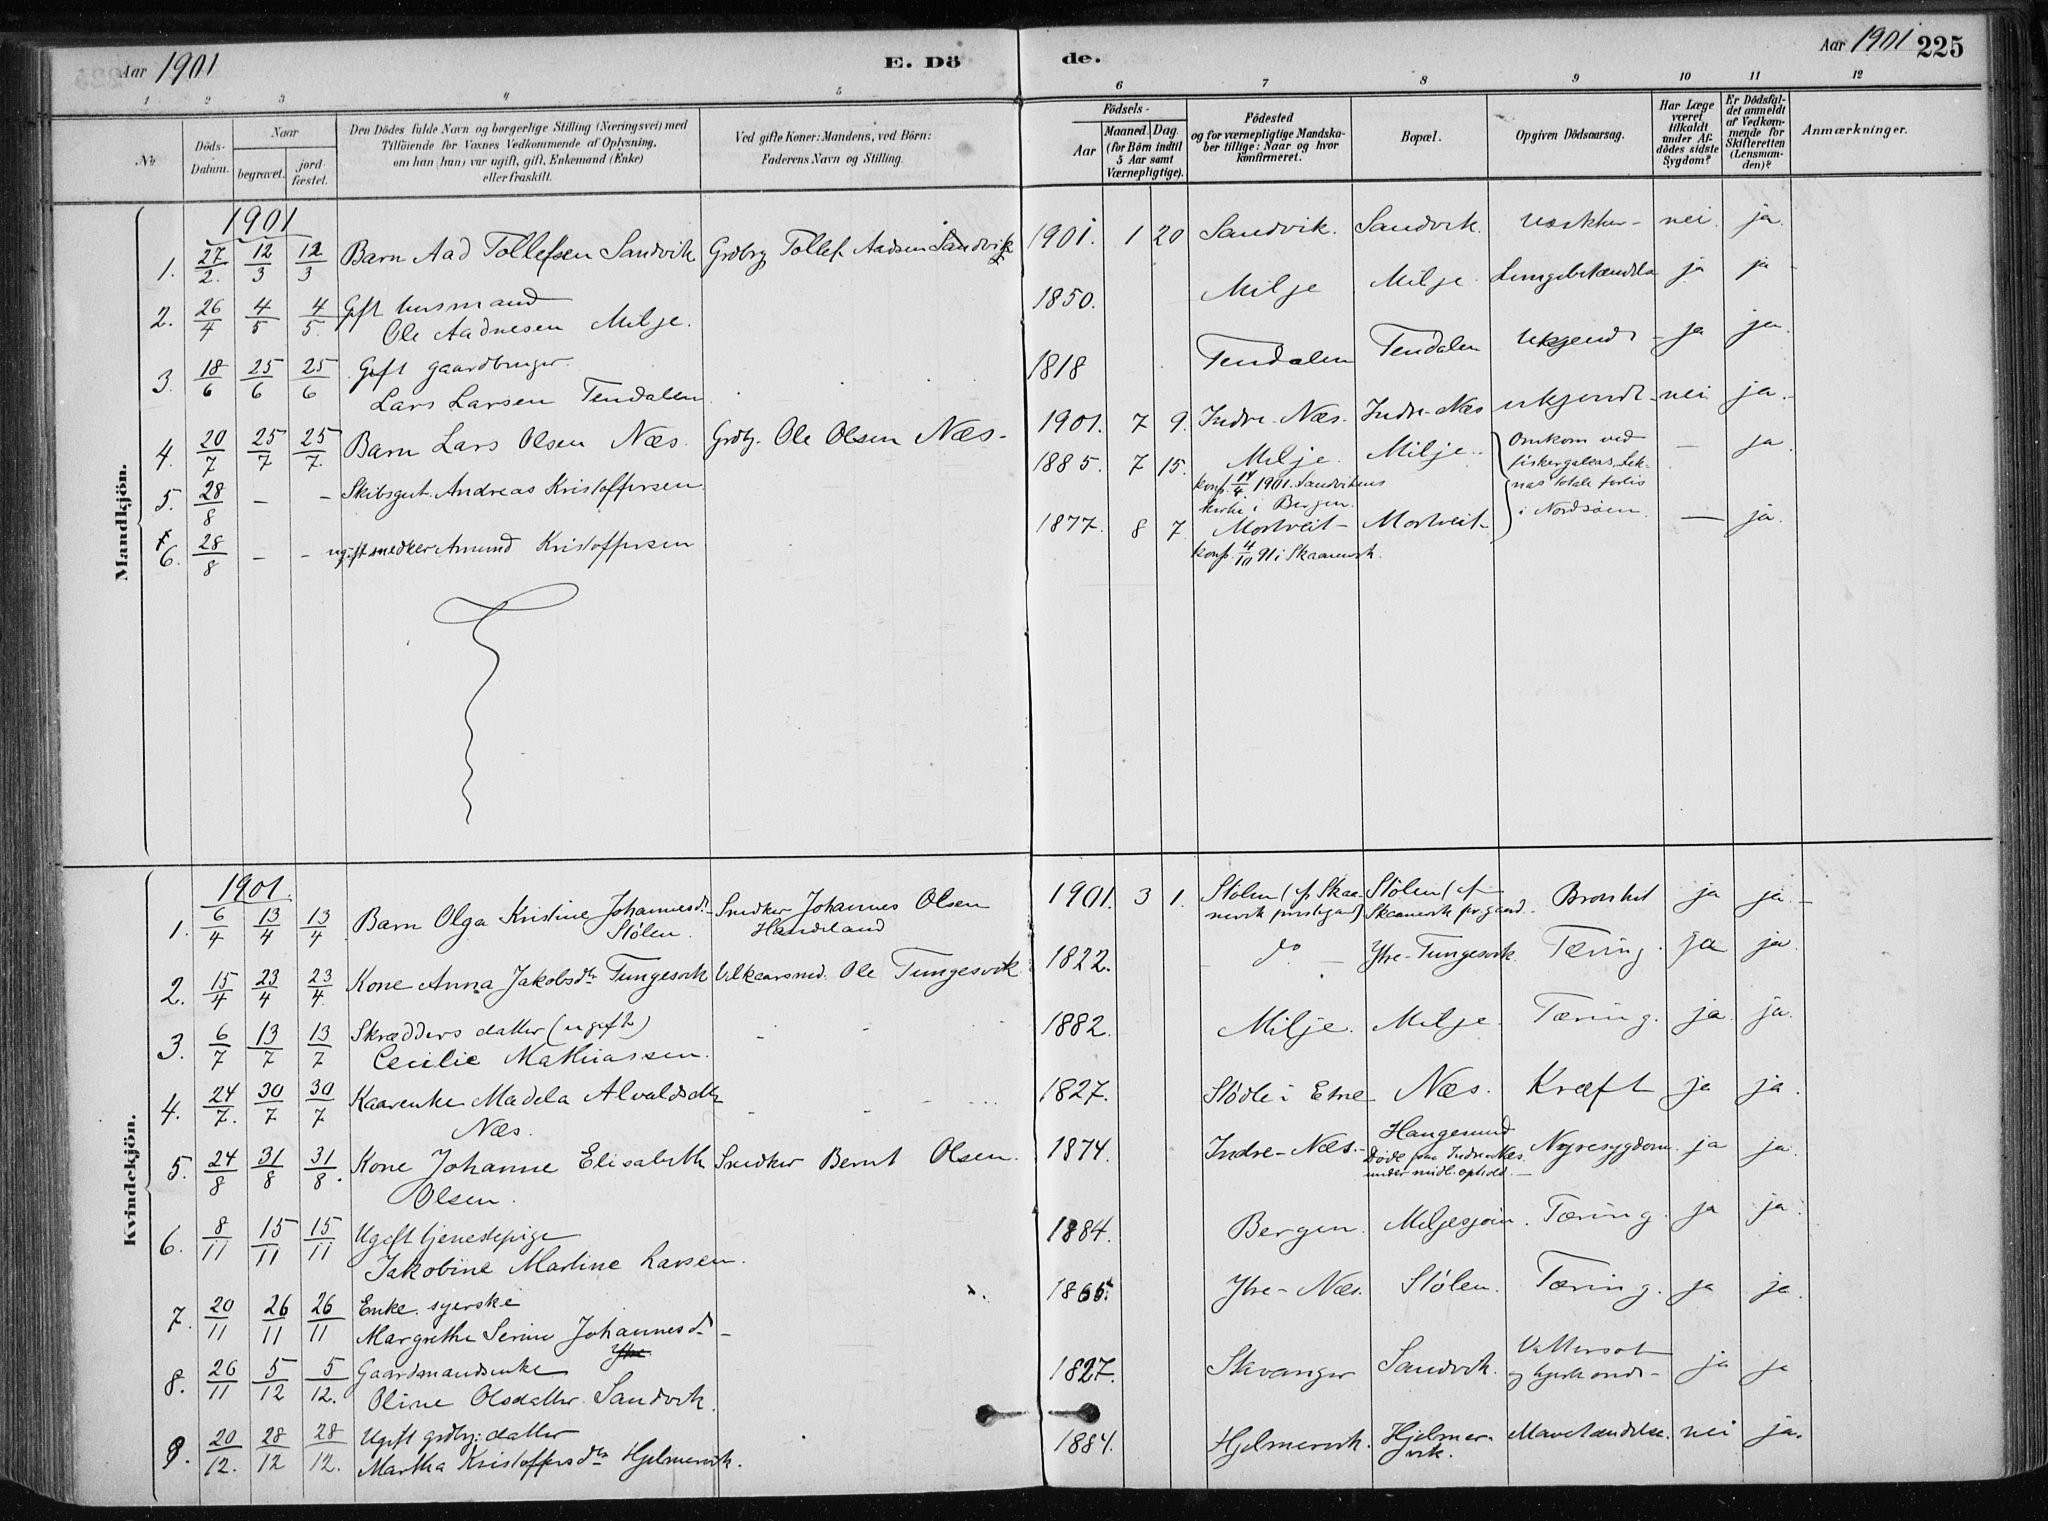 Aar 1901
E. Dö de.
Aar 1901 225
1 2 3 4 5 6 7 8 9 10 11 12
No
Döds-Datum.
Naar
begravet.
jord-fæstet.
Den Dödes fulde Navn og borgerlige Stilling (Næringsvei) med
Tilföiende for Voxnes Vedkommende af Oplysning,
om han (hun) var ugift, gift, Enkemand (Enke)
eller fraskilt.
Ved gifte Koner: Mandens, ved Börn:
Faderens Navn og Stilling.
Födsels-
Aar
Maaned. Dag.
(for Börn indtil
5 Aar samt
Værnepligtige).
Födested
og for værnepligtige Mandska-
ber tillige: Naar og hvor
konfirmeret.
Bopæl.
Opgiven Dödsaarsag.
Har Læge
været
tilkaldt
under Af-
dödes sidste
Sygdom?
Er Dödsfal-
det anmeldt
af Vedkom-
mende for
Skifteretten
(Lensman-
den)?
Anmærkninger.
Mandkjön.
1901
1. 27/2. 12/3 12/3 Barn Aad Tollefsen Sandvik Grdbrg Tollef Aadsen Sandvik 1901. 1 20 Sandvik. Sandvik. nei ja.
2. 26/4 4/5 4/5. Gift husmand
Ole Aadnesen Milje. 1850. Milje Milje. Lungebetændelse ja ja
3. 18/6 25/6 25/6 Gift gaardbruger.
Lars Larsen Tendalen 1818 Tendalen Tendalen Ukjendt - ja ja.
4. 20/7 25/7 25/7. Barn Lars Olsen Næs. Grdbg. Ole Olsen Næs- 1901. 7 9. Indre-Næs. Indre-Næs ukjendt - nei ja.
5. 28/8 - - Skibsgut. Andreas Kristoffersen. 1885. 7 15. Milje. Milje. Omkom ved
fiskergaleas, Lek-
nas totale forlis
i Nordsøen. - ja
konf. 14/4 1901. Sandvikens
kirke i Bergen.
6. 28/8 - - ugift snedker Amund Kristoffersen 1877. 8 7. Mortveit- Mortveit- - ja.
konf. 4/10 91 i Skaanevik.
Kvindekjön.
1901.
1. 6/4 13/4 13/4 Barn Olga Kristine Johannesd.
Stølen. Snedker Johannes Olsen
Handeland 1901. 3 1. Stølen (af Skaa-
nevik prestegjæld) Stølen (af
Skaanevik pr.gjæld. Bronkit ja ja.
2. 15/4 23/4 23/4. Kone Anna Jakobsdtr Tungesvik Vilkaarsmd. Ole Tungesvik 1822. - do - Ytre-Tungesvik. Tæring. ja ja.
3. 6/7 13/7 13/7 Skrædders datter (ugift)
Cecilie Mathiassen. 1882. Milje. Milje. Tæring. ja ja.
4. 24/7. 30/7 30/7 Kaarenke Madela Alvaldsdtr
Næs. 1827. Stødle i Etne Næs. Kræft ja ja.
5. 24/8 31/8 31/8. Kone Johanne Elisabeth
Olsen. Snedker Bernt Olsen. 1874. Indre-Næs.- Haugesund
Døde paa Indre-Næs.
under midl. ophold. Nyresygdom. ja ja.
6. 8/11 15/11 15/11 Ugift tjenestepige
Jakobine Martine Larsen. 1884. Bergen. Miljesjøin. Tæring. ja ja.
7. 20/11 26/11 26/11 Enke. syerske
Margrethe Serine Johannesd. 1865. Ytre-Næs. Stølen. Tæring. ja ja.
8. 26/11 5/12 5/12. Gaardmandsenke
Oline Olsdatter Sandvik. 1827. Stavanger Sandvik. Vattersot
og hjerteonde- ja ja
9. 20/12. 28/12 28/12. Ugift grdbg: datter
Martha Kristoffersdtr Hjelmervik. 1884. Hjelmervik. Hjelmer-
vik. Mavebetændelse. nei ja.